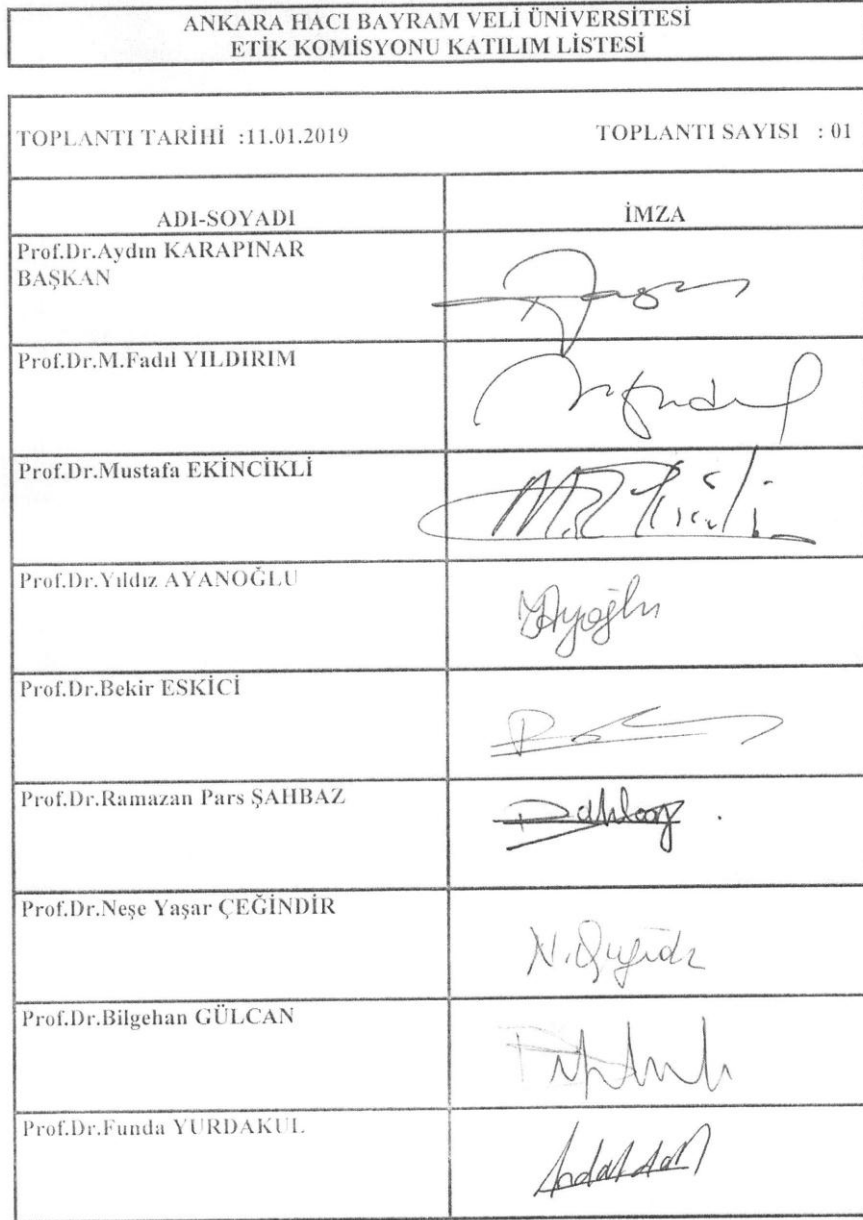 ANKARA HACI BAYRAM VELİ ÜNİVERSİTESİ
ETİK KOMİSYONU KATILIM LİSTESİ
TOPLANTI TARİHİ :11.01.2019 TOPLANTI SAYISI : 01
ADI-SOYADI İMZA
Prof.Dr.Aydın KARAPINAR
BAŞKAN
Prof.Dr.M.Fadıl YILDIRIM
Prof.Dr.Mustafa EKİNCİKLİ
Prof.Dr.Yıldız AYANOĞLU
Prof.Dr.Bekir ESKİCİ
Prof.Dr.Ramazan Pars ŞAHBAZ
Prof.Dr.Neşe Yaşar ÇEĞİNDİR
Prof.Dr.Bilgehan GÜLCAN
Prof.Dr.Funda YURDAKUL